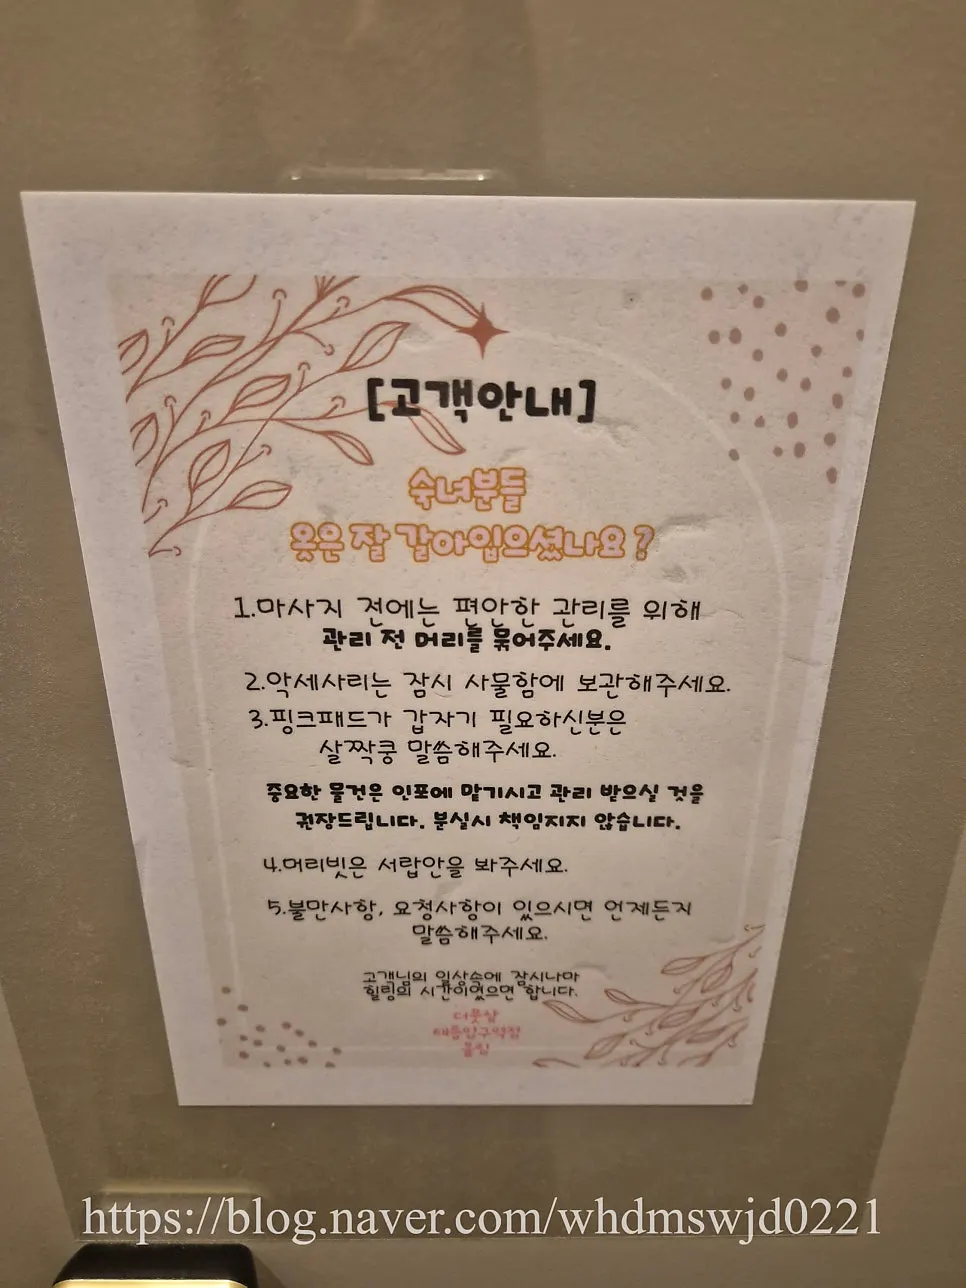 [고객안내]
숙녀분들
옷은 잘 갈아입으셨나요?
1.마사지 전에는 편안한 관리를 위해
관리 전 머리를 묶어주세요.
2.악세사리는 잠시 사물함에 보관해주세요.
3.핑크패드가 갑자기 필요하신분은
살짝쿵 말씀해주세요.
중요한 물건은 인포에 맡기시고 관리 받으실 것을
권장드립니다. 분실시 책임지지 않습니다.
4.머리빗은 서랍안을 봐주세요.
5.불만사항, 요청사항이 있으시면 언제든지
말씀해주세요.
고객님의 일상속에 잠시나마
힐링의 시간이였으면 합니다.
더풋샵
태릉입구역점
https://blog.naver.com/whdmswjd0221